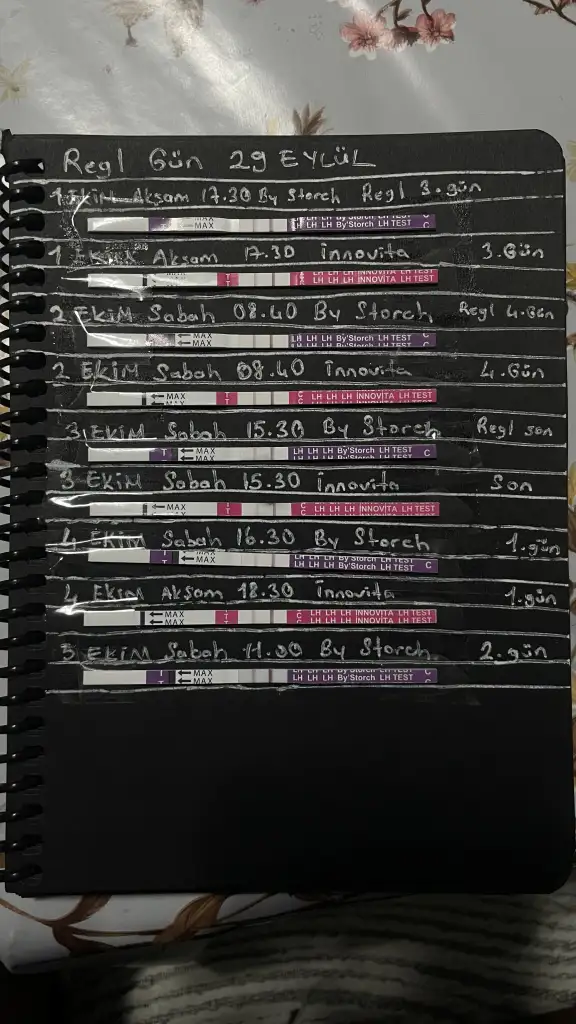 Regl Gün 29 EYLÜL
1 EKİM Akşam 17.30 By Storch Regl 3. gün
MAX
← MAX
LH LH LH By'Storch LH TEST C
1 Akşam 17.30 innovita 3. Gün
MAX
LH LH LH INNOVITA LH TEST
2 EKİM Sabah 08.40 By Storch Regl 4. Gün
← MAX
← MAX
LH LH LH By'Storch LH TEST C
2 EKİM Sabah 08.40 innovita 4. Gün
← MAX
← MAX
LH LH LH INNOVITA LH TEST
3 EKİM Sabah 15.30 By Storch Regl son
T ← MAX
← MAX
LH LH LH By'Storch LH TEST C
3 EKİM Sabah 15.30 innovita Son
← MAX
← MAX
LH LH LH INNOVITA LH TEST
4 EKİM Sabah 16.30 By Storch 1. gün
T ← MAX
← MAX
LH LH LH By'Storch LH TEST C
4 EKİM Akşam 18.30 innovita 1. gün
← MAX
T C LH LH LH INNOVITA LH TEST
5 EKİM Sabah 11.00 By Storch 2. gün
T ← MAX
← MAX
LH LH LH By'Storch LH TEST C